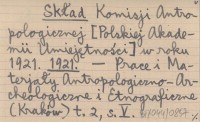 Skład Komisji Antro-
pologicznej [Polskiej Akade-
mii Umiejętności] w roku
1921. 1921. — Prace i Ma-
terjały Antropologiczno-Ar-
cheologiczne i Etnograficzne
(Kraków) t. 2, s. V.